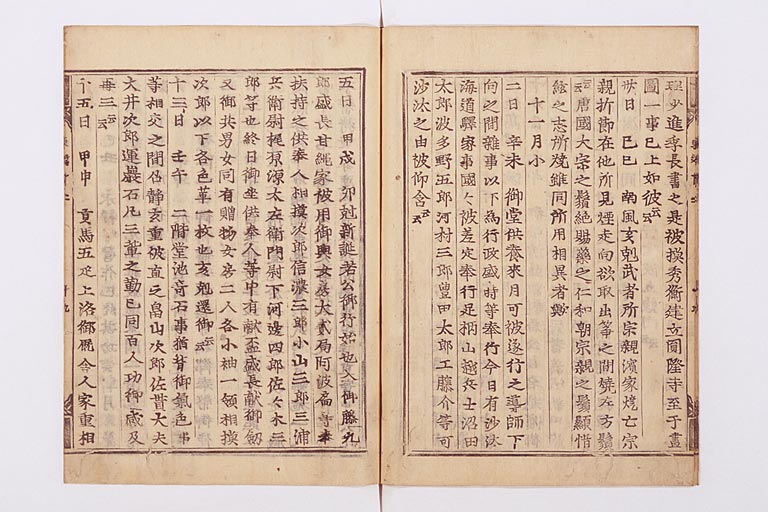 理少進季長書之是被摸秀衡建立圓隆寺至于畫
圖一事已上如彼云云
卅日 己巳 南風亥剋武者所宗親濱家燒亡宗
親折節在他所見煙走向欲取出箏之間燒左方鬢
云云唐國大宗之鬚絶賜藥之仁和朝宗親之鬚顯惜
絃之志所燒雖同所用相異者歟
十一月小
二日 辛未 御堂供養來月可被遂行之導師下
向之間雜事以下爲行政盛時等奉行今日有沙汰
海道驛家事國々被差定奉行足柄山越兵士沼田
太郎波多野五郎河村三郎豐田太郎工藤介等可
沙汰之由被仰含云云
五日 甲戌 卯剋新誕若公御行始也 御藤九
郎盛長甘繩家被用御輿女房大貳局阿波局等奉
扶持之供奉人相摸次郎信濃三郎小山三郎三浦
兵衛尉梶原源太左衛門尉下河邊四郎佐々木三
郎等也終日御坐供奉人等中有獻盃盛長獻御劔
又御共男女同有贈物女房二人各小袖一領相摸
次郎以下各色革一枚也亥剋還御云云
十三日 壬午 二階堂池奇石事猶背御氣色事
等相交之間召靜玄重被直之畠山次郎佐貫大夫
大井次郎運嚴石凡三輩之勤已同百人功御感及
再三云云
十五日 甲申 貢馬五疋上洛御厩舍人家重相